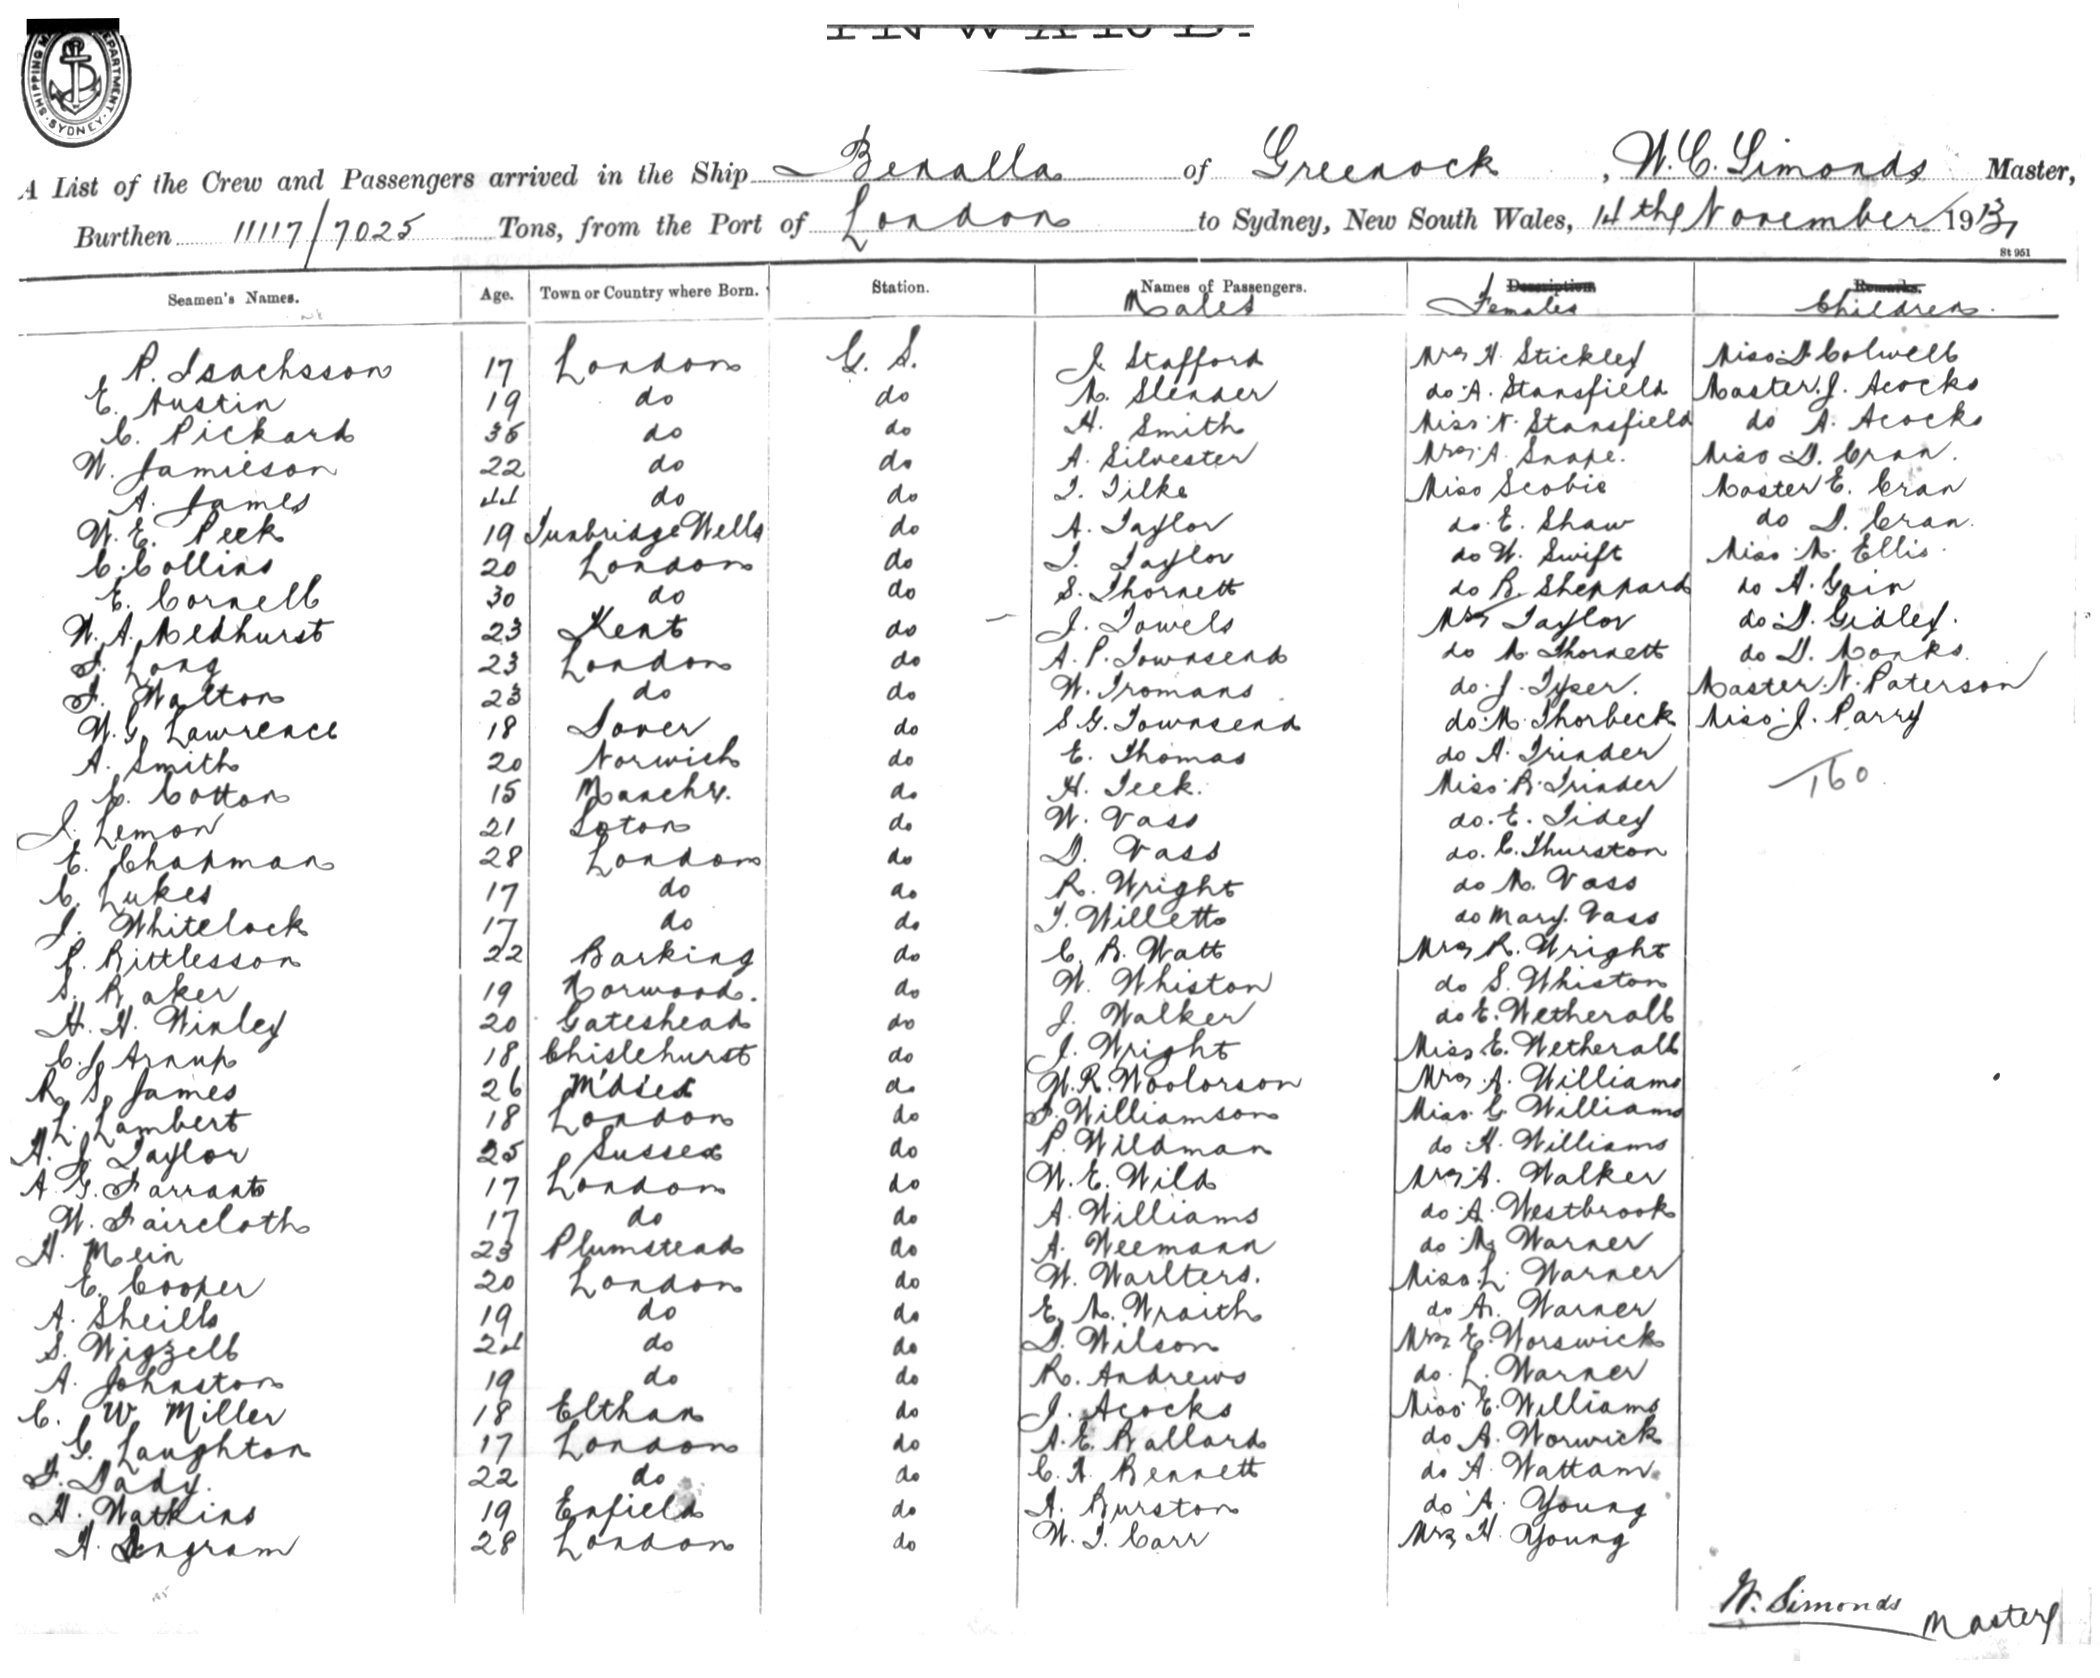 SHIPPING M DEPARTMENT SYDNEY
INWARD.
A List of the Crew and Passengers arrived in the Ship Benalla of Greenock, W. C. Simonds Master,
Burthen 11117/7025 Tons, from the Port of London to Sydney, New South Wales, 14th November 1913
St 951
Seamen's Names. Age. Town or Country where Born. Station. Names of Passengers. Description Remarks.
Males Females Children
P. Isachsson 17 London G. S. J. Stafford Mrs H. Stickley Miss D. Colwell
E. Austin 19 do do M. Slender do A. Stansfield Master J. Acocks
C. Pickard 36 do do H. Smith Miss N. Stansfield do A. Acocks
W. Jamieson 22 do do A. Silvester Mrs A. Snape. Miss D. Cran.
A. James 44 do do T. Tilke Miss Scobie Master E. Cran
W. E. Peek 19 Tunbridge Wells do A. Taylor do E. Shaw do D. Cran.
C. Collins 20 London do T. Taylor do W. Swift Miss M. Ellis.
E. Cornell 30 do do S. Thornett do B. Sheppard do A. Gain
W. A. Medhurst 23 Kent do J. Towels Mrs Taylor do D. Gidley.
F. Long 23 London do A. P. Townsend do M. Thornett do D. Monks.
F. Walton 23 do do W. Tromans do J. Tyser. Master N. Paterson
W. G. Lawrence 18 Dover do S. G. Townsend do M. Thorbeck Miss J. Parry
A. Smith 20 Norwich do E. Thomas do A. Trinder
C. Cotton 15 Manchr. do H. Teek. Miss B. Trinder 160
J. Lemon 21 do W. Vass do E. Tidey
E. Chapman 28 London do D. Vass do C. Thurston
C. Lukes 17 do do R. Wright do M. Vass
J. Whitelock 17 do do T. Willetts do Mary Vass
P. Bittlesson 22 Barking do C. B. Watt Mrs R. Wright
S. Baker 19 Norwood. do W. Whiston do S. Whiston
H. H. Winley 20 Gateshead do J. Walker do E. Wetherall
C. J. Arnup 18 Chislehurst do J. Wright Miss E. Wetherall
R. S. James 26 M'dsex do W. R. Woolorson Mrs A. Williams
L. Lambert 18 London do F. Williamson Miss G. Williams
A. J. Taylor 25 Sussex do P. Wildman do H. Williams
A. G. Farrants 17 London do W. E. Wild Mrs A. Walker
W. Faircloth 17 do do A. Williams do A. Westbrook
H. Mein 23 Plumstead do A. Weemann do M. Warner
E. Cooper 20 London do W. Warlters. Miss L. Warner
A. Sheills 19 do do E. M. Wraith do A. Warner
S. Wigzell 24 do do D. Wilson Mrs E. Worswick
A. Johnston 19 do do R. Andrews do L. Warner
C. W. Miller 18 Eltham do J. Acocks Miss E. Williams
G. Laughton 17 London do A. E. Ballard do A. Worwick
F. Dady. 22 do do C. A. Bennett do A. Wattam
H. Watkins 19 Enfield do A. Burston do A. Young
A. Ingram 28 London do W. T. Carr Mrs H. Young
W. Simonds Master